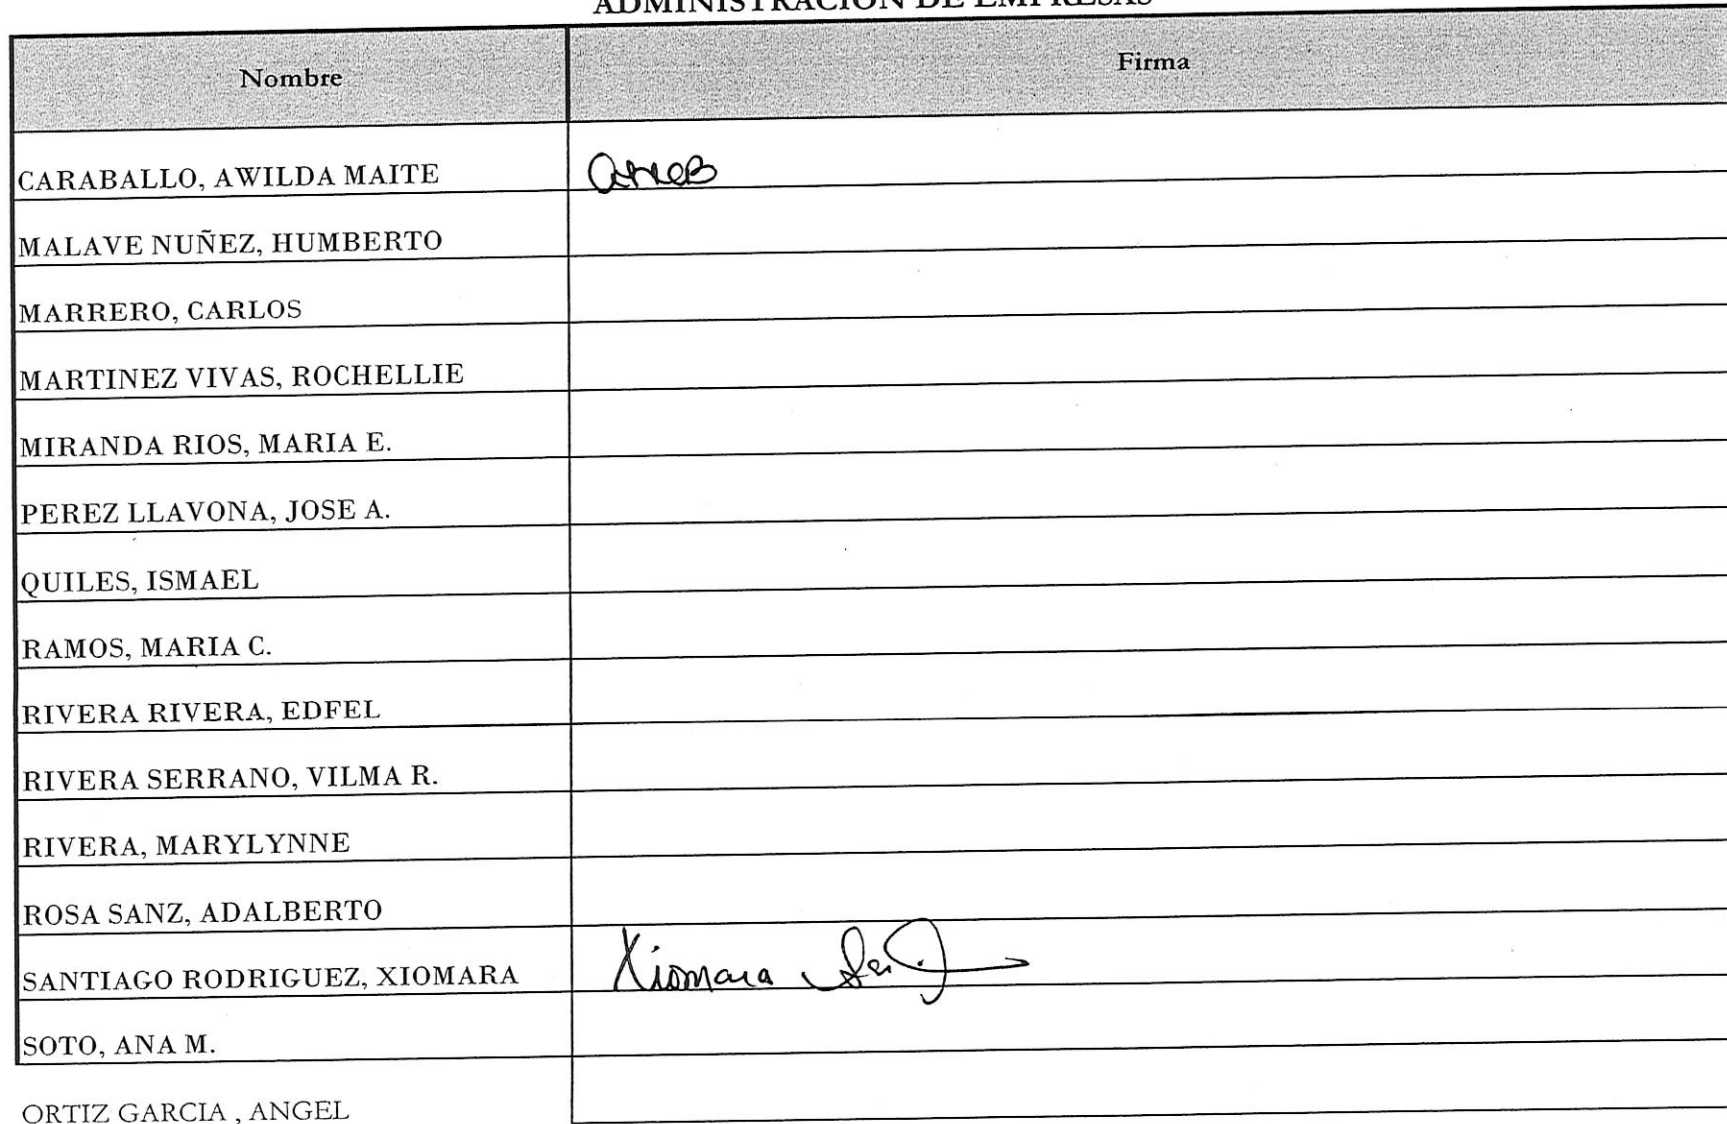 ADMINISTRACION DE EMPRESAS
Nombre Firma
CARABALLO, AWILDA MAITE
MALAVE NUÑEZ, HUMBERTO
MARRERO, CARLOS
MARTINEZ VIVAS, ROCHELLIE
MIRANDA RIOS, MARIA E.
PEREZ LLAVONA, JOSE A.
QUILES, ISMAEL
RAMOS, MARIA C.
RIVERA RIVERA, EDFEL
RIVERA SERRANO, VILMA R.
RIVERA, MARYLYNNE
ROSA SANZ, ADALBERTO
SANTIAGO RODRIGUEZ, XIOMARA Xiomara
SOTO, ANA M.
ORTIZ GARCIA , ANGEL